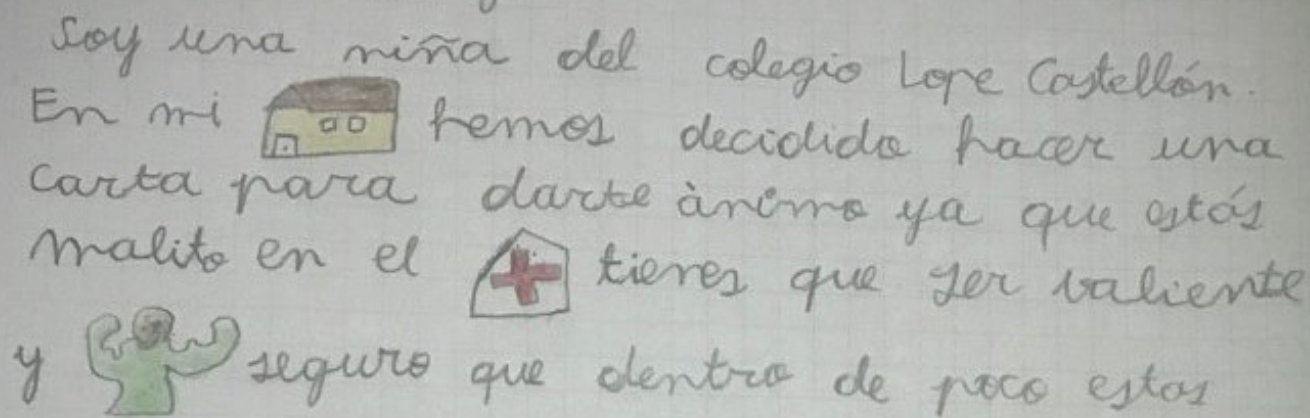 Soy una niña del colegio Lope Castellón.
En mi hemos decidido hacer una
carta para darte ànimo ya que estás
malito en el tienes que ser valiente
y seguro que dentro de poco estas